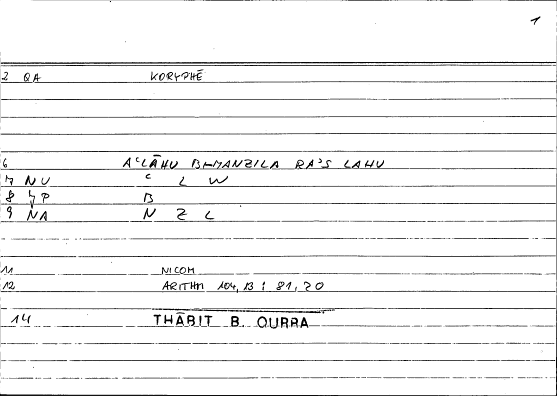 1
2 QA KORYPHĒ
6 AʿLĀHU BI-MANZILA RAʾS LAHU
7 NU ʿ L W
8 YP B
9 NA N Z L
11 NICOM
12 ARITHM 104, 13 : 81, 20
14 THĀBIT B. QURRA